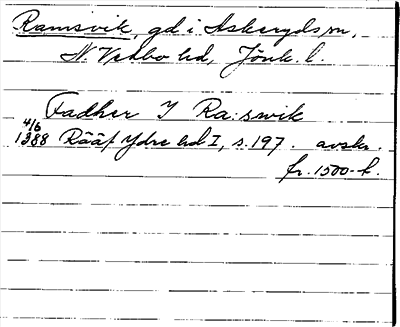 Ramsvik, gd i Askeryds sn,
N. Vedbo hd, Jönk. l.
Fadher I Ra:swik
4/6
1388 Rääf Ydre hd I, s. 197. avskr.
fr. 1500-t.